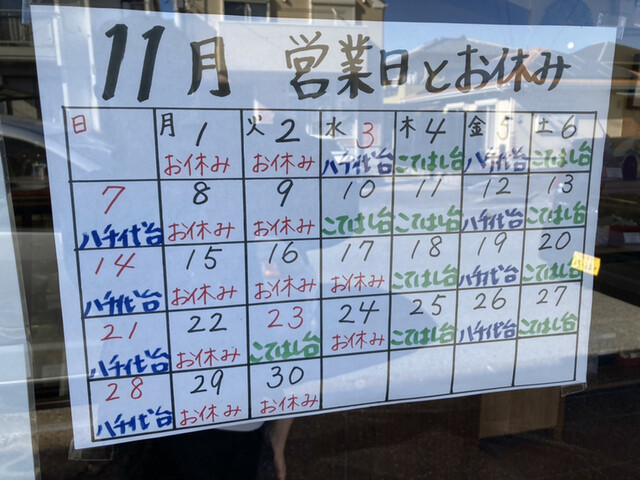 11月 営業日とお休み
日 月 1 火 2 水 3 木 4 金 5 土 6
お休み お休み 八千代台 こてはし台 八千代台 こてはし台
7 8 9 10 11 12 13
八千代台 お休み お休み こてはし台 こてはし台 八千代台 こてはし台
14 15 16 17 18 19 20
八千代台 お休み お休み お休み こてはし台 八千代台 こてはし台
21 22 23 24 25 26 27
八千代台 お休み こてはし台 お休み こてはし台 八千代台 こてはし台
28 29 30
八千代台 お休み お休み